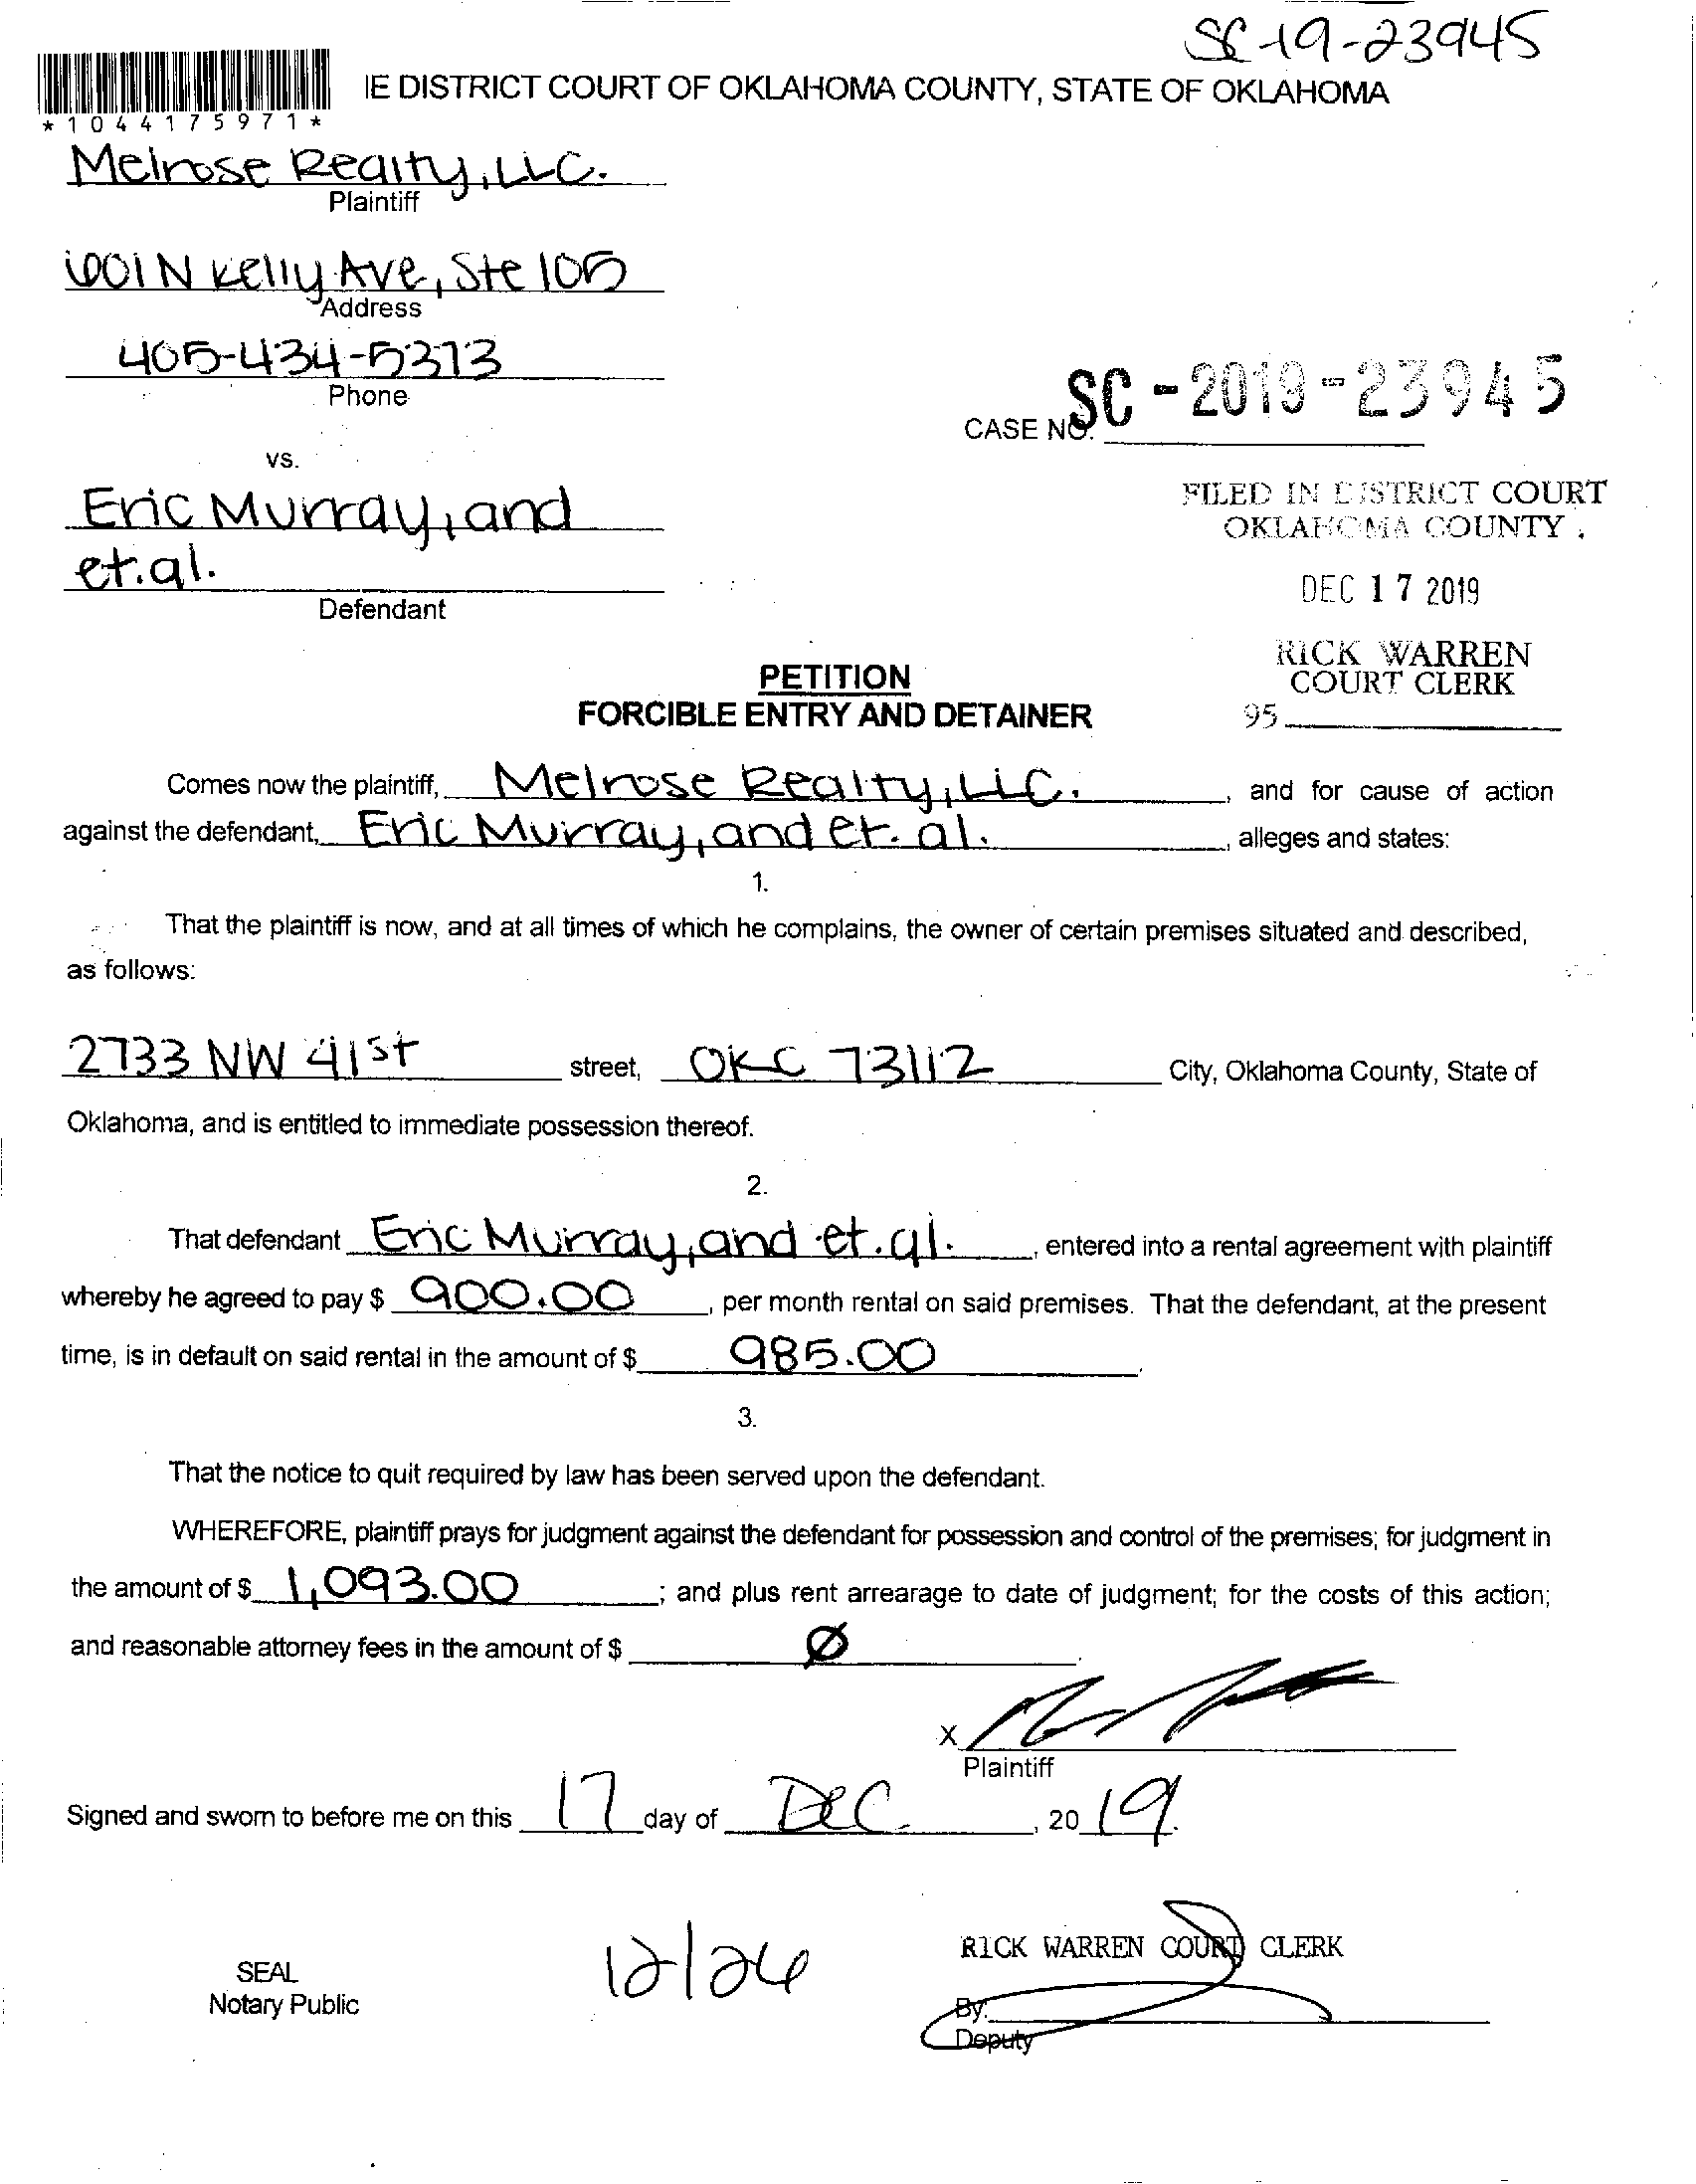 SC-19-23945
IE DISTRICT COURT OF OKLAHOMA COUNTY, STATE OF OKLAHOMA
*1044175971*
Melrose Realty, LLC.
Plaintiff
601 N Kelly Ave, Ste 105
Address
405-434-5373
Phone
CASE NO. SC-2019-23945
vs.
Eric Murray, and
et. al.
Defendant
FILED IN DISTRICT COURT
OKLAHOMA COUNTY
DEC 17 2019
RICK WARREN
COURT CLERK
95
PETITION
FORCIBLE ENTRY AND DETAINER
Comes now the plaintiff, Melrose Realty, LLC. , and for cause of action
against the defendant, Eric Murray, and et. al. , alleges and states:
1.
That the plaintiff is now, and at all times of which he complains, the owner of certain premises situated and described,
as follows:
2733 NW 41st street, OKC 73112 City, Oklahoma County, State of
Oklahoma, and is entitled to immediate possession thereof.
2.
That defendant Eric Murray, and et. al. , entered into a rental agreement with plaintiff
whereby he agreed to pay $ 900.00 , per month rental on said premises. That the defendant, at the present
time, is in default on said rental in the amount of $ 985.00 .
3.
That the notice to quit required by law has been served upon the defendant.
WHEREFORE, plaintiff prays for judgment against the defendant for possession and control of the premises; for judgment in
the amount of $ 1,093.00 ; and plus rent arrearage to date of judgment; for the costs of this action;
and reasonable attorney fees in the amount of $ Ø .
X
Plaintiff
Signed and sworn to before me on this 17 day of DEC , 20 19.
SEAL
Notary Public
12/26
RICK WARREN COURT CLERK
By:
Deputy